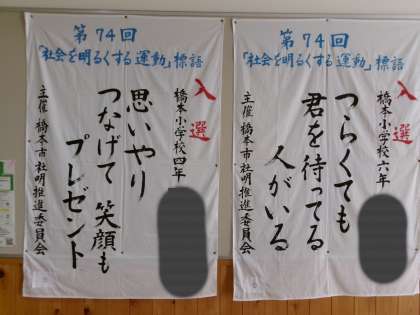 第74回
「社会を明るくする運動」標語
入選
橋本小学校四年
思いやり
つなげて 笑顔も
プレゼント
主催 橋本市社明推進委員会
第74回
「社会を明るくする運動」標語
入選
橋本小学校六年
つらくても
君を待ってる
人がいる
主催 橋本市社明推進委員会